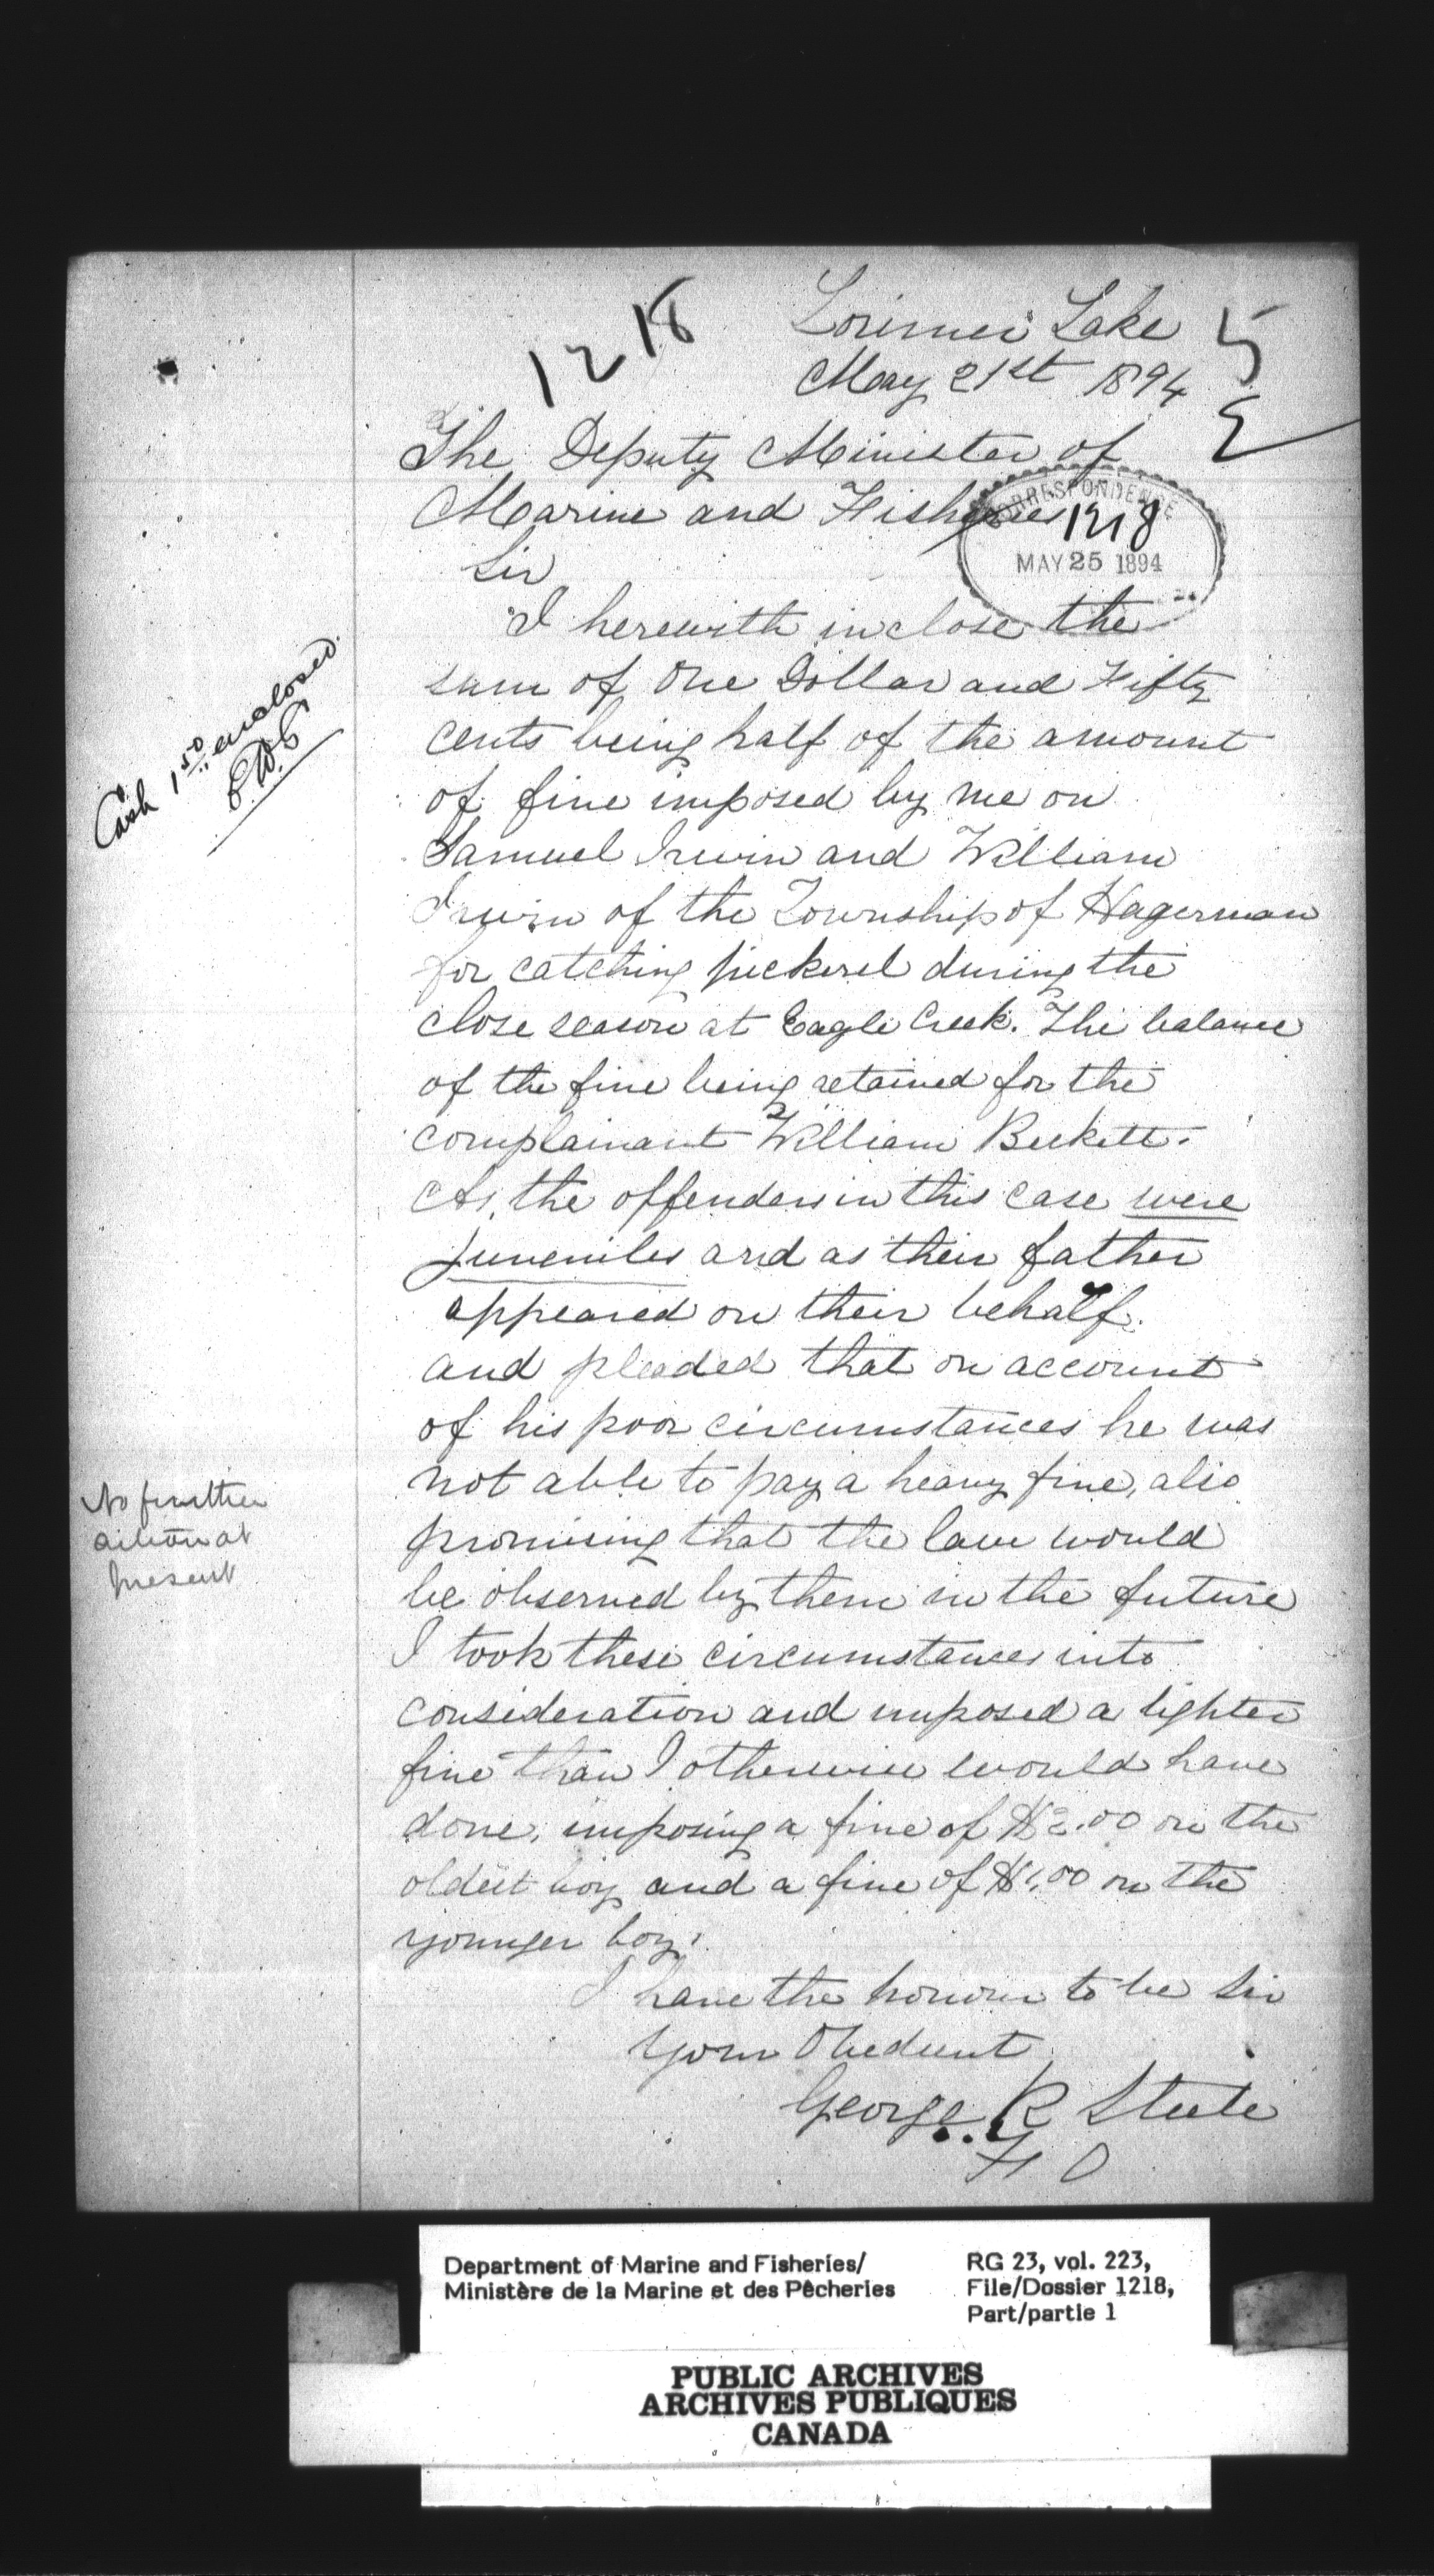 1218
Lorimer Lake
May 21st 1894
5
The Deputy Minister of
Marine and Fisheries
CORRESPONDENCE
1218
MAY 25 1894
Sir
I herewith inclose the
sum of One Dollar and Fifty
cents being half of the amount
of fine imposed by me on
Samuel Irwin and William
Irwin of the Township of Hagerman
for catching pickerel during the
close season at Eagle Creek. The balance
of the fine being retained for the
complainant William Beckett.
As, the offenders in this case were
juveniles and as their father
appeared on their behalf.
and pleaded that on account
of his poor circumstances he was
not able to pay a heavy fine, also
promising that the law would
be observed by them in the future
I took these circumstances into
consideration and imposed a lighter
fine than I otherwise would have
done, imposing a fine of $2.00 on the
oldest boy and a fine of $1.00 on the
younger boy.
I have the honour to be Sir
Your Obedient
George R Steele
F O
Cash 1.50 enclosed.
No further
action at
present
Department of Marine and Fisheries/
Ministère de la Marine et des Pêcheries
RG 23, vol. 223,
File/Dossier 1218,
Part/partie 1
PUBLIC ARCHIVES
ARCHIVES PUBLIQUES
CANADA